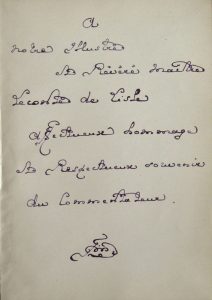 A
notre Illustre
et Révéré maître
Leconte de Lisle
affectueux hommage
et Respectueux souvenir
du Commentateur.